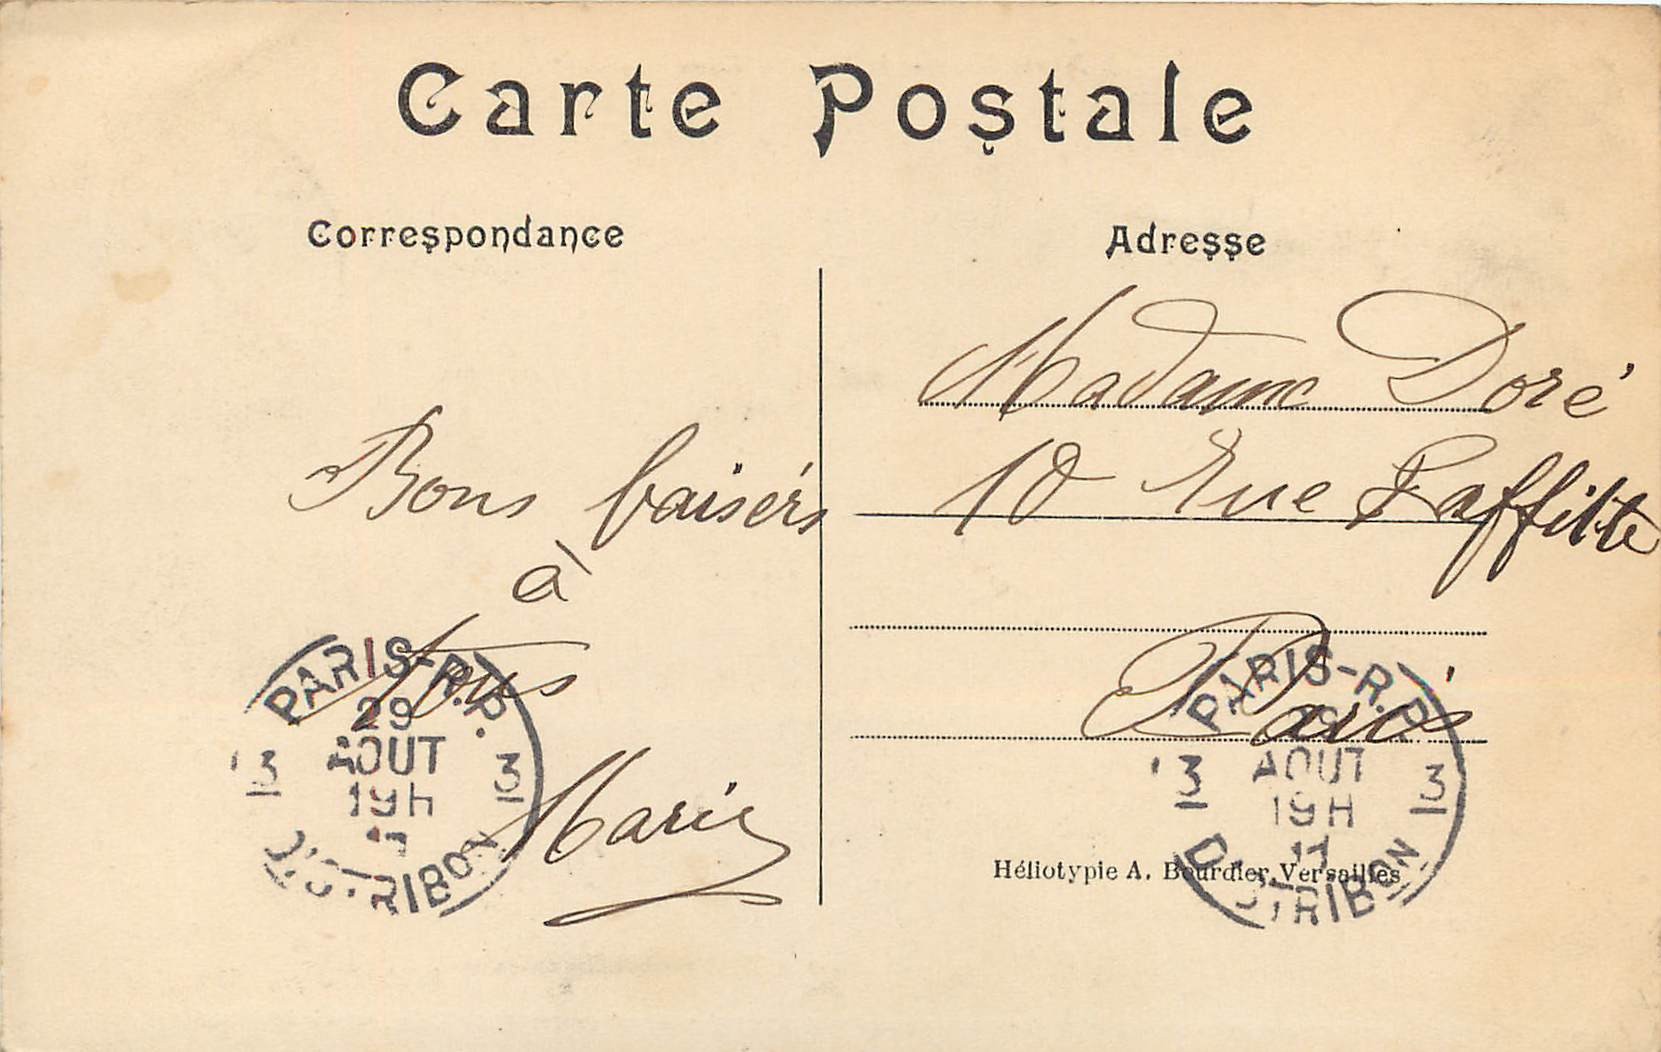 Carte Postale
Correspondance
Adresse
Bons baisérs
à
tous
Marie
Madame Doré
10 Rue Laffitte
Paris
PARIS-R.P.
29
AOUT
19H
3 3
DISTRIBON
Héliotypie A. Bourdier, Versailles
PARIS-R.P.
29
AOUT
19H
11
3 3
DISTRIBON